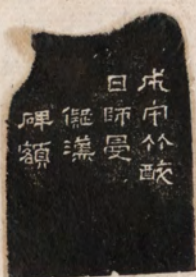 戊竹醉
日師曼
儗漢
碑額